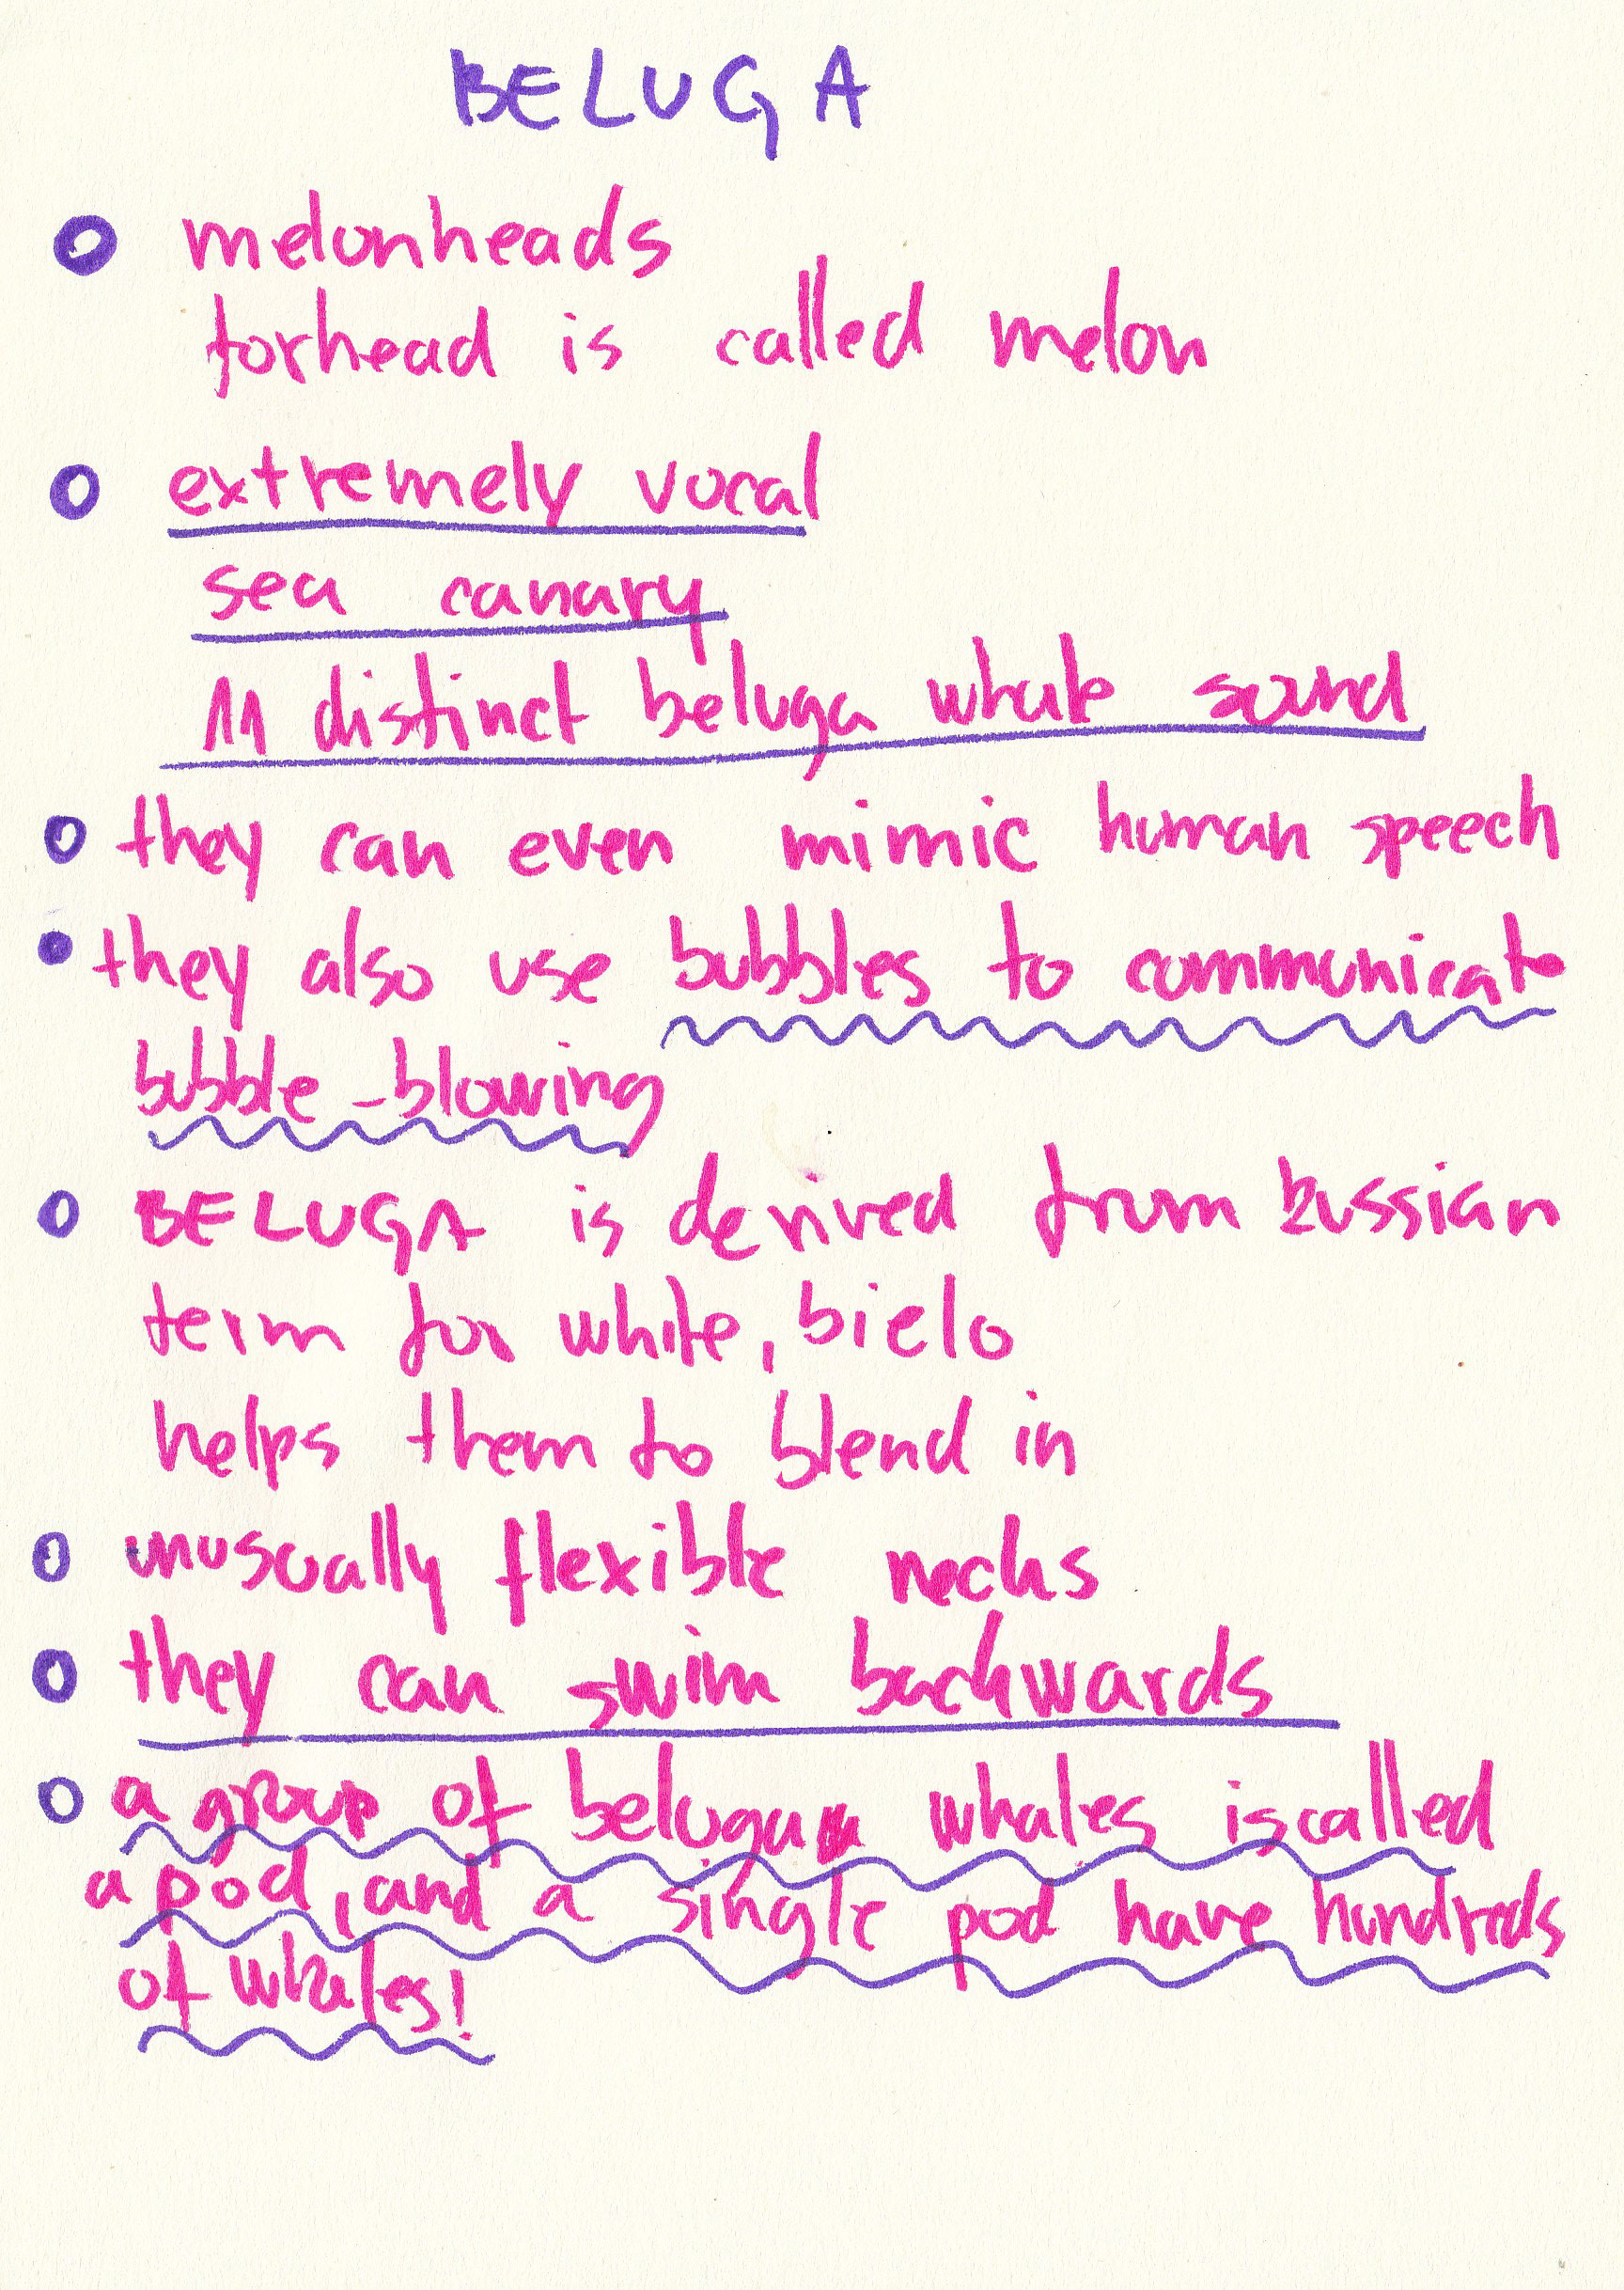 BELUGA
melonheads
forhead is called melon
extremely vocal
sea canary
11 distinct beluga whale sound
they can even mimic human speech
they also use bubbles to communicate
bubble-blowing
BELUGA is derived from Russian
term for white, bielo
helps them to blend in
unusually flexible necks
they can swim backwards
a group of beluga whales is called
a pod, and a single pod have hundreds
of whales!